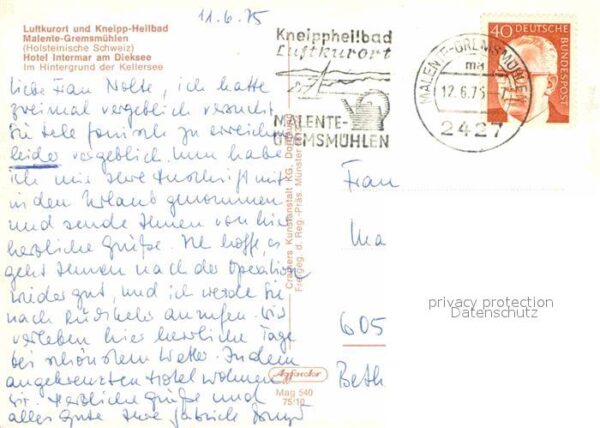 11.6.75
Luftkurort und Kneipp-Heilbad
Malente-Gremsmühlen
(Holsteinische Schweiz)
Hotel Intermar am Dieksee
im Hintergrund der Kellersee
Kneippheilbad
Luftkurort
MALENTE-
GREMSMÜHLEN
MALENTE-GREMSMÜHLEN
ma
12.6.75
2427
40 DEUTSCHE
BUNDESPOST
Liebe Frau Nolte, ich hatte
zweimal vergeblich versucht
Sie telefonisch zu erreichen
leider vergeblich. Nun habe
ich mir Ihre Anschrift mit
in den Urlaub genommen
und sende Ihnen von hier
herzliche Grüße. Ich hoffe, es
geht Ihnen nach der Operation
wieder gut, und ich werde Sie
nach Rückkehr anrufen. Wir
verleben hier herrliche Tage
bei schönstem Wetter. In dem
angekreuzten Hotel wohnen
wir. Herzliche Grüße und
alles Gute Ihre
Cramers Kunstanstalt KG, Dortmund
Freigeg. d. Reg.-Präs. Münster
Frau
Ma
605
Beth
privacy protection
Datenschutz
Agfacolor
Mag 540
75/10